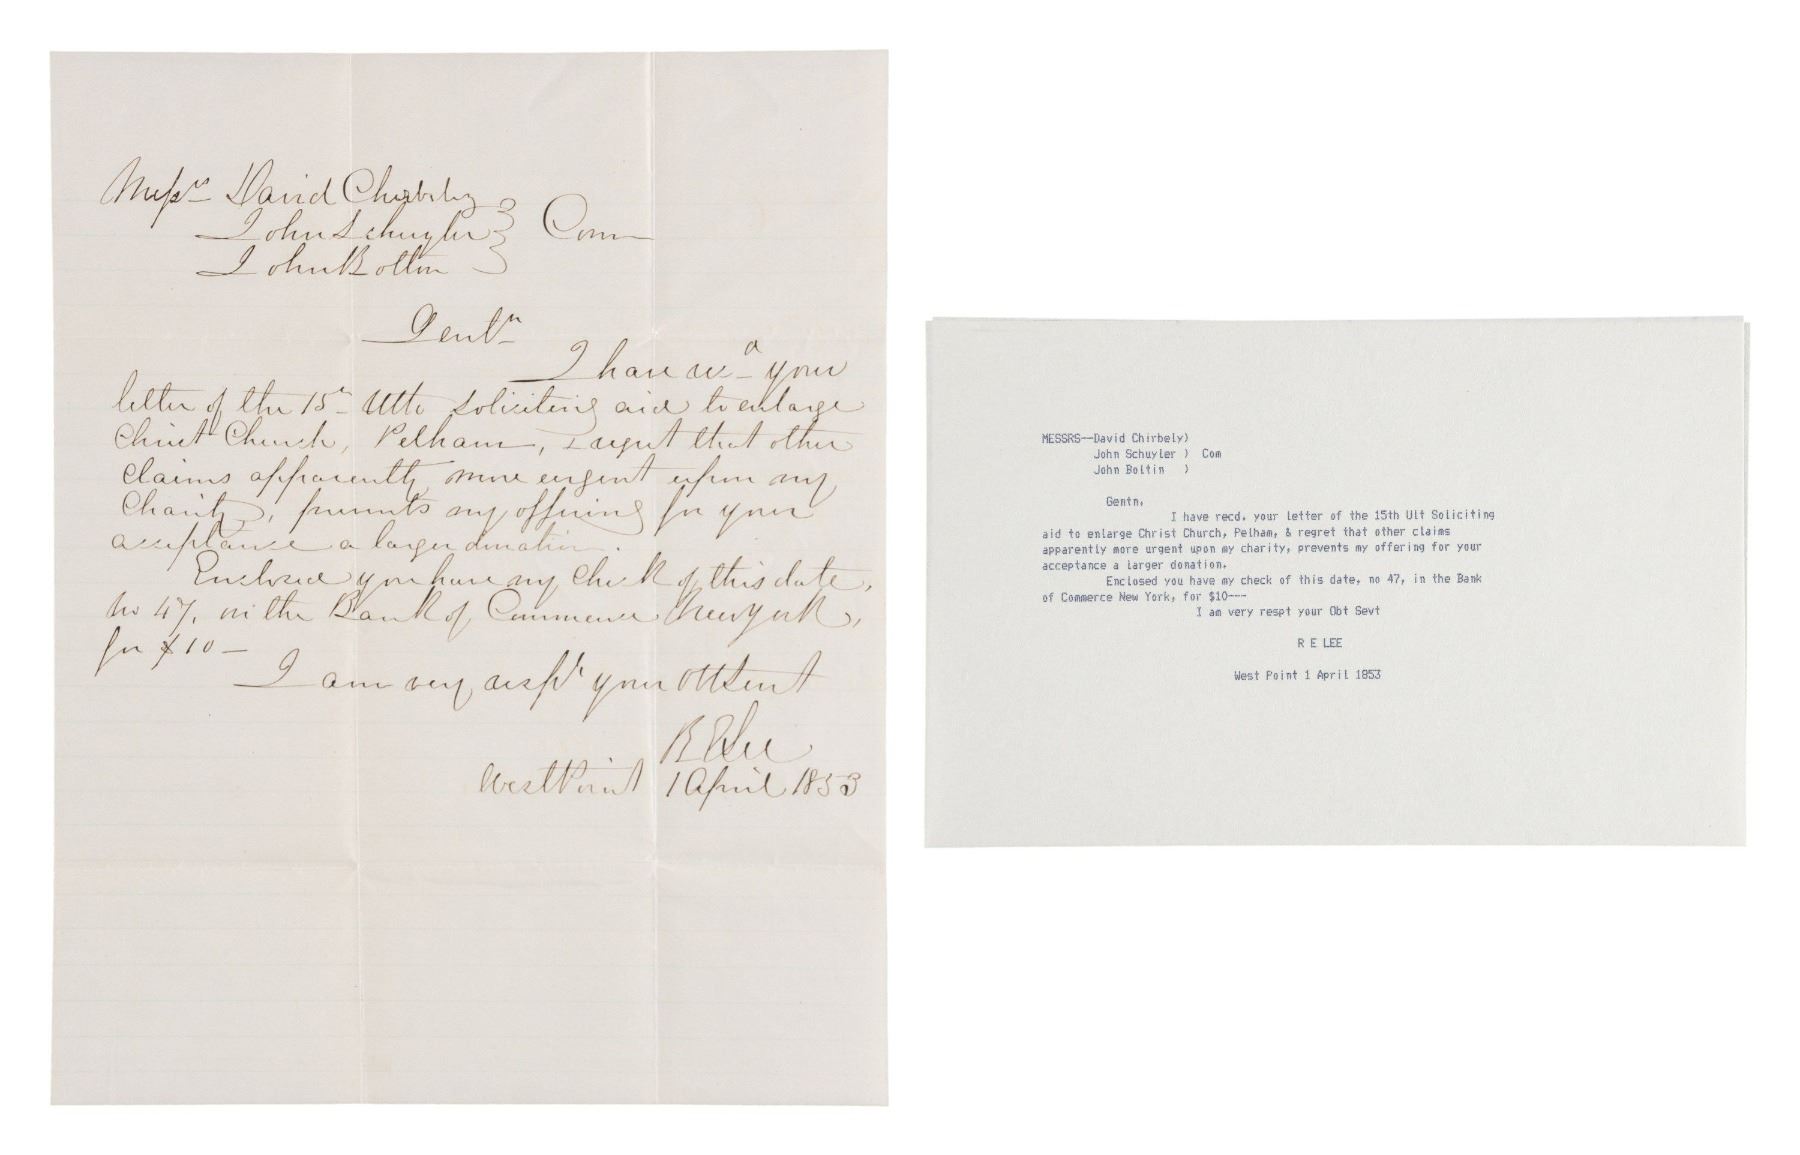 Messrs David Chirbely
John Schuyler } Com
John Bolton
Gentn
I have recd your
letter of the 15th Ulto soliciting aid to enlarge
Christ Church, Pelham, & regret that other
claims apparently more urgent upon my
Charity, prevents my offering for your
acceptance a larger donation.
Enclosed you have my check of this date,
no 47, in the Bank of Commerce New York,
for $10 —
I am very respt your Obt Servt
R E Lee
West Point 1 April 1853
MESSRS--David Chirbely)
John Schuyler ) Com
John Boltin )
Gentn,
I have recd. your letter of the 15th Ult Soliciting
aid to enlarge Christ Church, Pelham, & regret that other claims
apparently more urgent upon my charity, prevents my offering for your
acceptance a larger donation.
Enclosed you have my check of this date, no 47, in the Bank
of Commerce New York, for $10---
I am very respt your Obt Sevt
R E LEE
West Point 1 April 1853